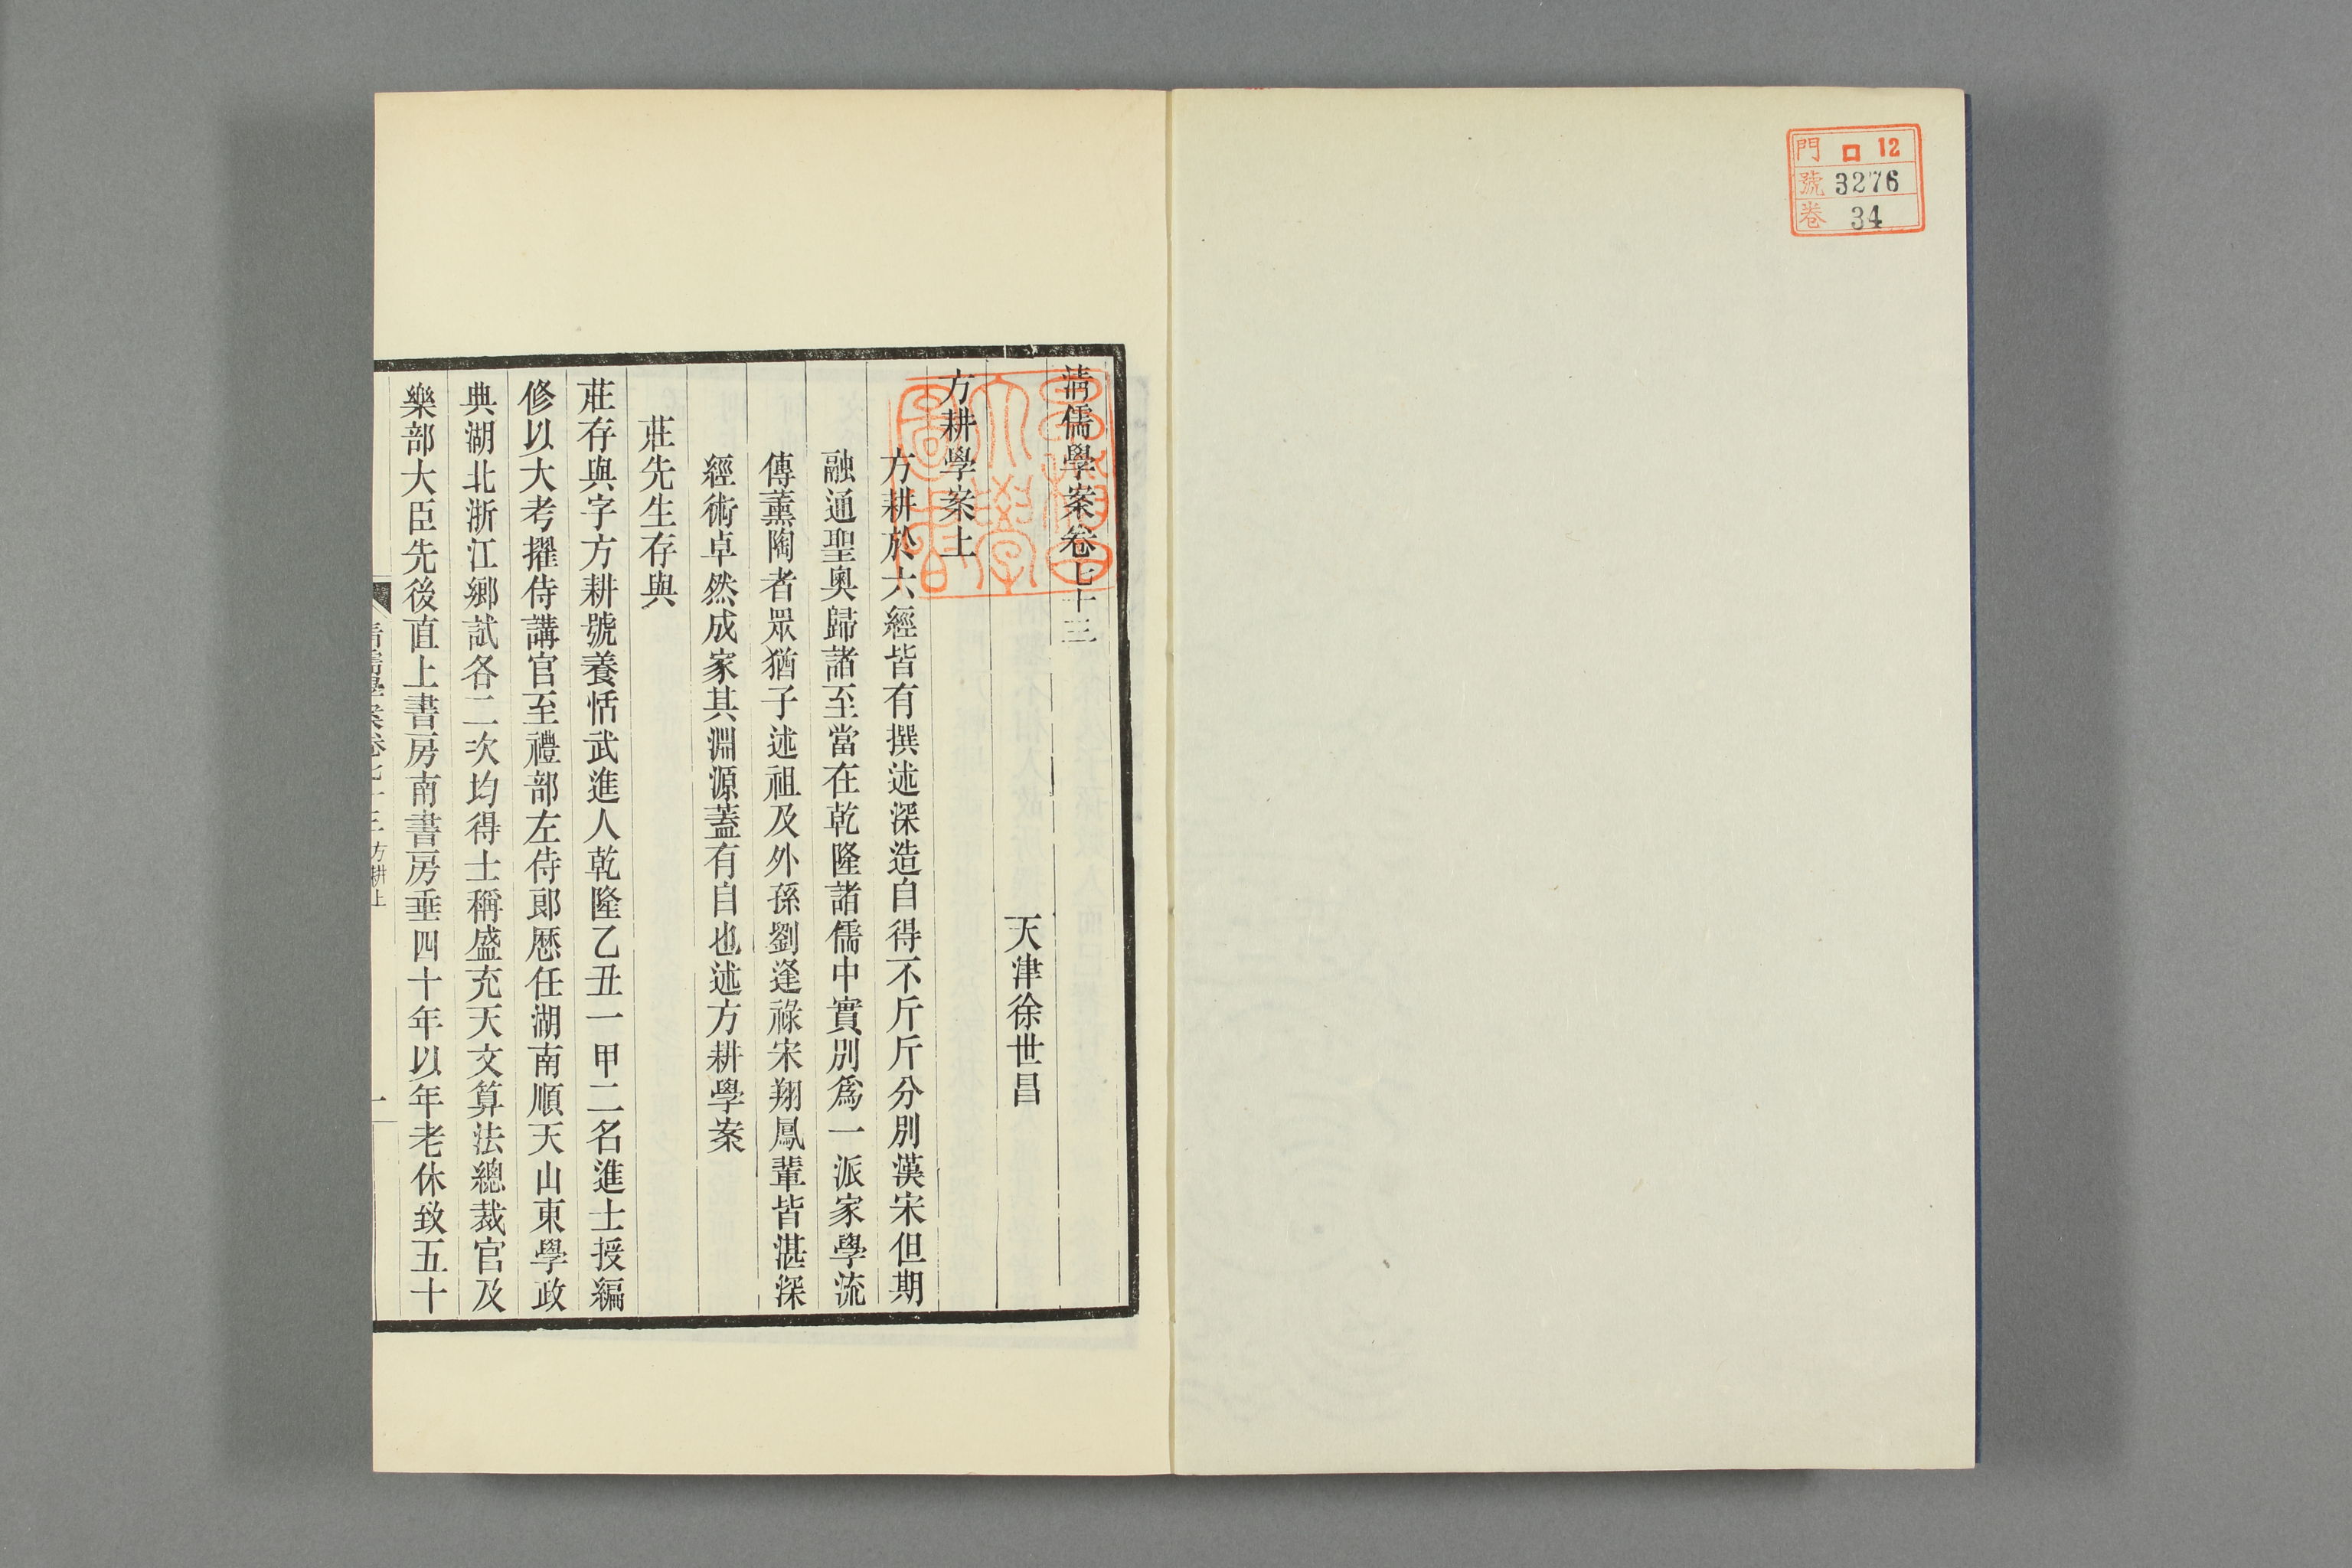 門 ロ 12
號 3276
卷 34
清儒學案卷七十三
天津徐世昌
方耕學案上
方耕於六經皆有撰述深造自得不斤斤分別漢宋但期
融通聖奥歸諸至當在乾隆諸儒中實別爲一派家學流
傳薰陶者眾猶子述祖及外孫劉逢祿宋翔鳳輩皆湛深
經術卓然成家其淵源蓋有自也述方耕學案
莊先生存與
莊存與字方耕號養恬武進人乾隆乙丑一甲二名進士授編
修以大考擢侍講官至禮部左侍郎歷任湖南順天山東學政
典湖北浙江鄉試各二次均得士稱盛充天文算法總裁官及
樂部大臣先後直上書房南書房垂四十年以年老休致五十
清儒學案卷七十三 方耕上
一